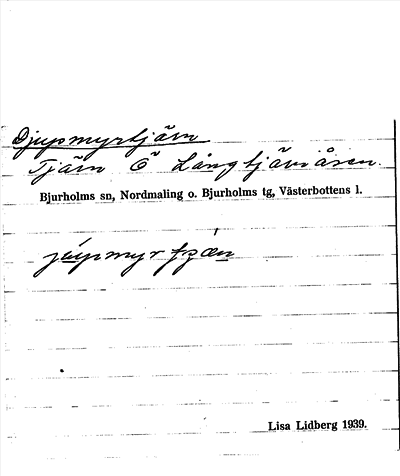 Djupmyrtjärn
Tjärn Ö Långtjärnåsen.
Bjurholms sn, Nordmaling o. Bjurholms tg, Västerbottens l.
Lisa Lidberg 1939.